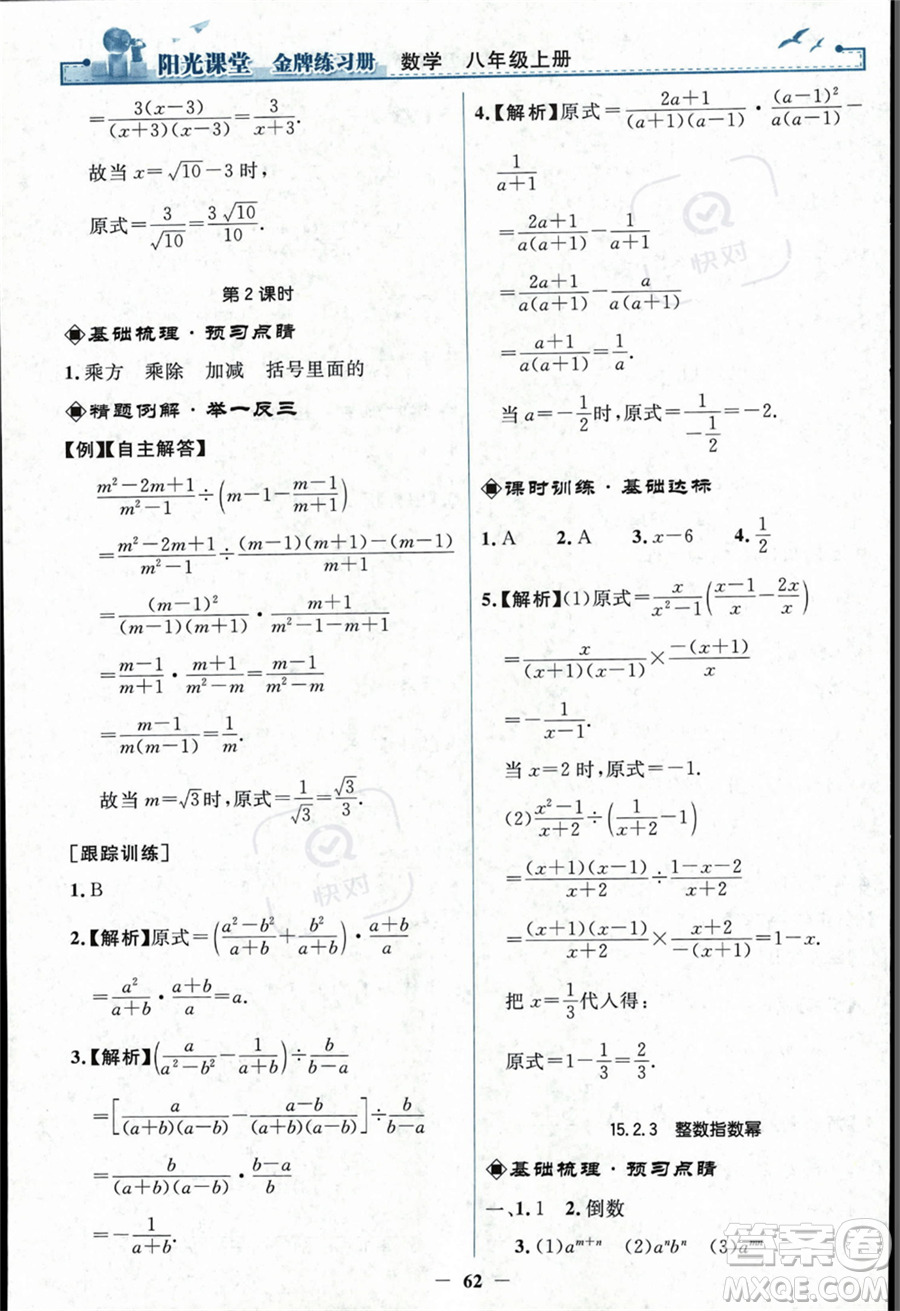 阳光课堂 金牌练习册 数学 八年级上册
=3(x-3)/((x+3)(x-3))=3/(x+3).
故当 x=√10-3时,
原式=3/√10=3√10/10.
第2课时
基础梳理·预习点睛
1.乘方 乘除 加减 括号里面的
精题例解·举一反三
【例】【自主解答】
(m²-2m+1)/(m²-1)÷(m-1-(m-1)/(m+1))
=(m²-2m+1)/(m²-1)÷((m-1)(m+1)-(m-1))/(m+1)
=(m-1)²/((m-1)(m+1))·(m+1)/(m²-1-m+1)
=(m-1)/(m+1)·(m+1)/(m²-m)=(m-1)/(m²-m)
=(m-1)/(m(m-1))=1/m.
故当 m=√3时,原式=1/√3=√3/3.
[跟踪训练]
1.B
2.【解析】原式=((a²-b²)/(a+b)+b²/(a+b))·(a+b)/a
=a²/(a+b)·(a+b)/a=a.
3.【解析】(a/(a²-b²)-1/(a+b))÷b/(b-a)
=[a/((a+b)(a-b))-(a-b)/((a+b)(a-b))]÷b/(b-a)
=b/((a+b)(a-b))·(b-a)/b
=-1/(a+b)
4.【解析】原式=(2a+1)/((a+1)(a-1))·(a-1)²/(a(a-1))-
1/(a+1)
=(2a+1)/(a(a+1))-1/(a+1)
=(2a+1)/(a(a+1))-a/(a(a+1))
=(a+1)/(a(a+1))=1/a.
当 a=-1/2时,原式=1/(-1/2)=-2.
课时训练·基础达标
1.A 2.A 3.x-6 4.1/2
5.【解析】(1)原式=x/(x²-1)((x-1)/x-2x/x)
=x/((x+1)(x-1))×(-(x+1))/x
=-1/(x-1).
当 x=2 时,原式=-1.
(2)(x²-1)/(x+2)÷(1/(x+2)-1)
=((x+1)(x-1))/(x+2)÷(1-x-2)/(x+2)
=((x+1)(x-1))/(x+2)×(x+2)/(-(x+1))=1-x.
把 x=1/3代入得:
原式=1-1/3=2/3.
15.2.3 整数指数幂
基础梳理·预习点睛
一、1.1 2.倒数
3.(1)a^(m+n) (2)aⁿbⁿ (3)a^(mn)
62
快对
快对
答案圈
MXQE.COM